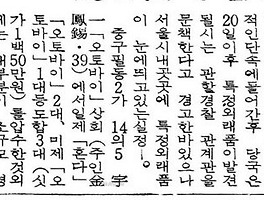 적인단속에들어간 당국은
20일이후 특정외래품이발견
될시는 관할경찰 관계관을
문책한다고 경고한바있으나
서울시내곳곳에 특정외래품
이 눈에띄고있는실정—。
중구필동2가 14의5 宇
一「오토바이」상회(주인金
鳳錫·39)에서일제「혼다」
「오토바이」2대、미제「오
토바이」1대등도합3대(싯
가1백50만원)를압수한것외